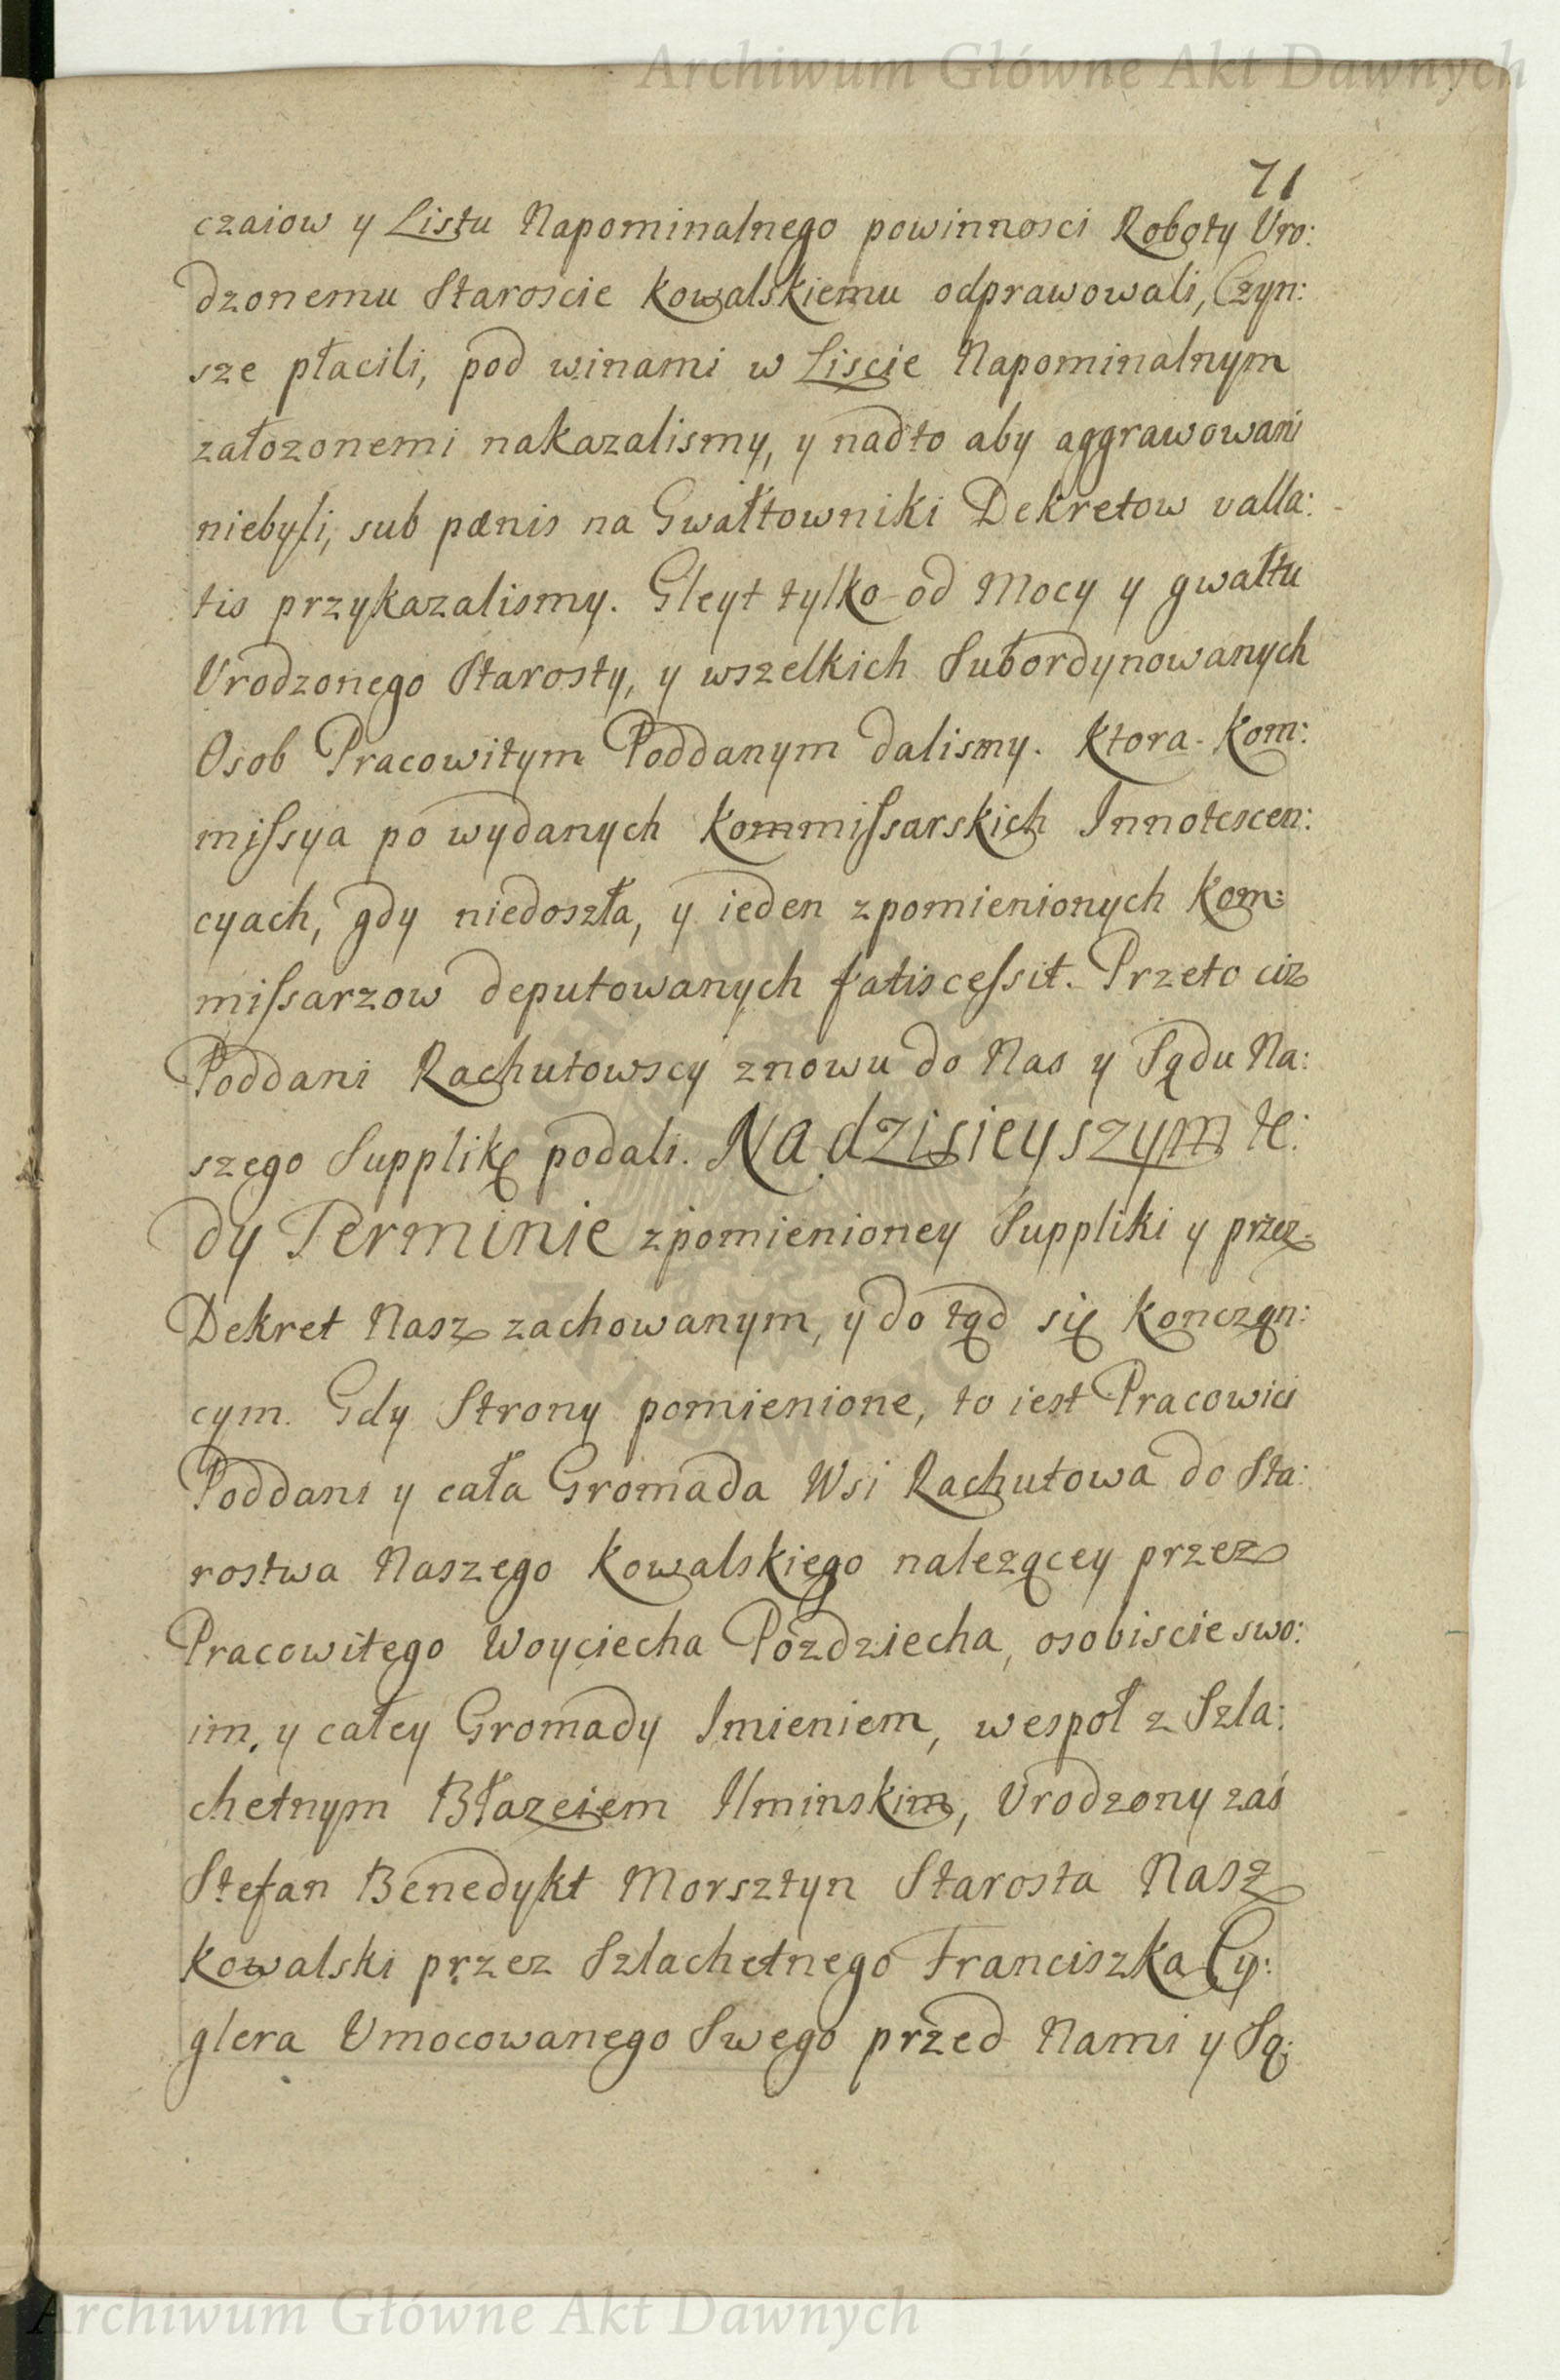 Archiwum Główne Akt Dawnych
71
czaiow y Listu Napominalnego powinnosci Roboty Uro:
dzonemu Staroscie Kowalskiemu odprawowali, Czyn:
sze płacili, pod winami w Liscie Napominalnym
założonemi nakazalismy, y nadto aby aggrawowani
niebyli, sub pænis na Gwałtowniki Dekretow valla:
tis przykazalismy. Gleyt tylko od Mocy y gwałtu
Urodzonego Starosty, y wszelkich Subordynowanych
Osob Pracowitym Poddanym dalismy. Ktora Kom:
missya po wydanych Kommissarskich Innotescen:
cyach, gdy niedoszła, y ieden zpomienionych Kom:
missarzow deputowanych fatiscessit. Przeto ciz
Poddani Rachutowscy znowu do Nas y Sądu Na:
szego Supplikę podali. Na dzisieyszym te:
dy Terminie zpomienioney Suppliki y przez
Dekret Nasz zachowanym, y do tąd się kończąn:
cym. Gdy Strony pomienione, to iest Pracowici
Poddani y cała Gromada Wsi Rachutowa do Sta:
rostwa Naszego Kowalskiego nalezącey przez
Pracowitego Woyciecha Pozdziecha, osobiscie swo:
im, y całey Gromady Imieniem, wespoł z Szla:
chetnym Błazeiem Ilminskim, Urodzony zaś
Stefan Benedykt Morsztyn Starosta Nasz
Kowalski przez Szlachetnego Franciszka Cy:
glera Umocowanego Swego przed Nami y Są:
Archiwum Główne Akt Dawnych